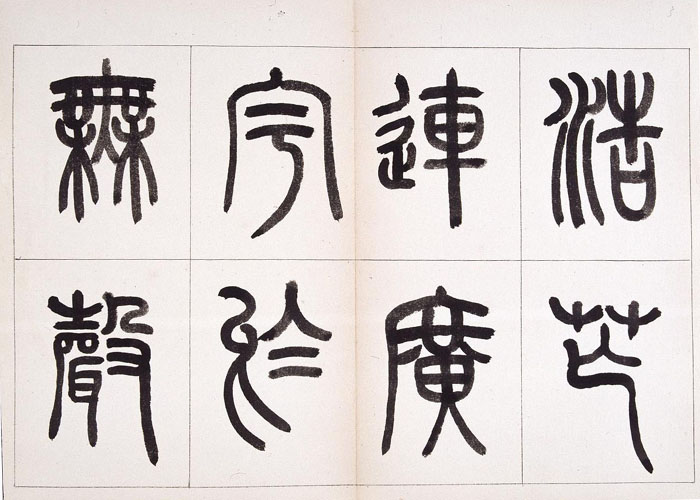 浩芒
連廣
宇於
無聲